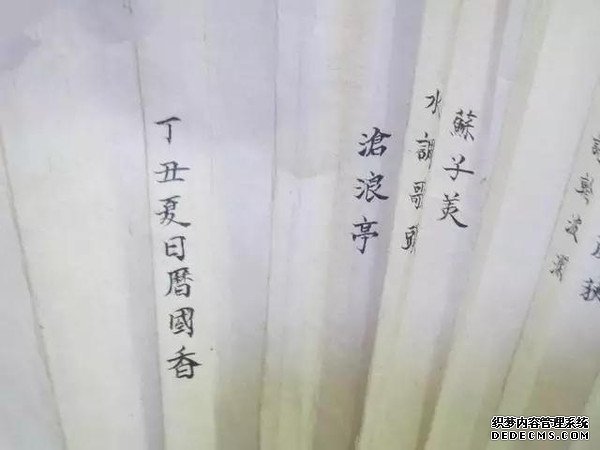 荻
波瀾
蘇子美
水調哥頭
滄浪亭
丁丑夏日暦國香
织梦内容管理系统
DEDECMS.COM